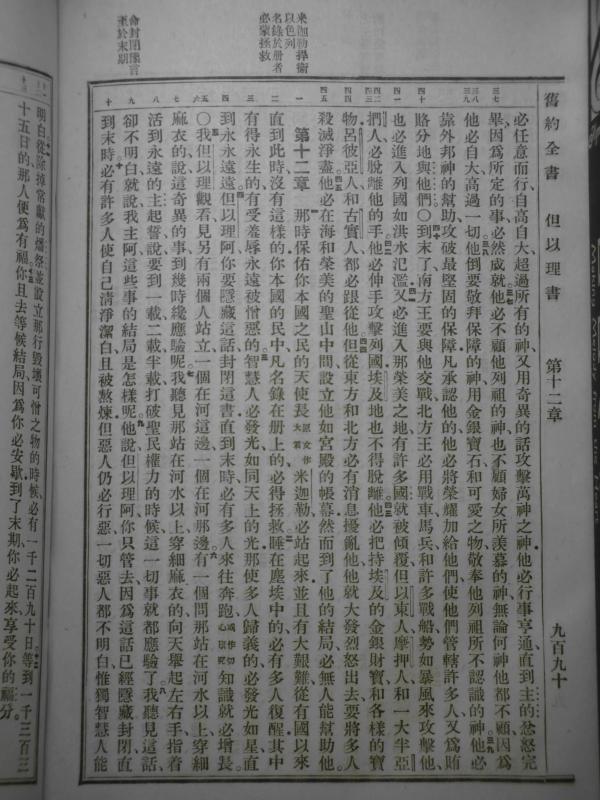 舊約全書 但以理書 第十二章 九百九十
米迦勒捍衛
以色列
名錄於册者
必蒙拯救
命封閉豫言
至於末期
必任意而行、自高自大、超過所有的神、又用奇異的話攻擊萬神之神、他必行事亨通、直到主的忿怒完
畢、因為所定的事、必然成就。他必不顧他列祖的神、也不顧婦女所羨慕的神、無論何神他都不顧、因為
他必自大、高過一切。他倒要敬拜保障的神、用金銀寶石和可愛之物、敬奉他列祖所不認識的神。他必
靠外邦神的幫助、攻破最堅固的保障、凡承認他的、他必將榮耀加給他們、使他們管轄許多人、又為賄
賂分地與他們。○到末了、南方王要與他交戰、北方王必用戰車、馬兵、和許多戰船、勢如暴風來攻擊他、
也必進入列國、如洪水氾濫。又必進入那榮美之地、有許多國就被傾覆、但以東人、摩押人、和一大半亞
捫人、必脫離他的手。他必伸手攻擊列國、埃及地也不得脫離。他必把持埃及的金銀財寶和各樣的寶
物、呂彼亞人、和古實人、都必跟從他。但從東方和北方必有消息擾亂他、他就大發烈怒出去、要將多人
殺滅淨盡。他必在海和榮美的聖山中間、設立他如宮殿的帳幕、然而到了他的結局、必無人能幫助他。
第十二章 那時保佑你本國之民的天使長原文作大君米迦勒必站起來、並且有大艱難、從有國以來
直到此時、沒有這樣的、你本國的民中、凡名錄在册上的、必得拯救。睡在塵埃中的、必有多人復醒、其中
有得永生的、有受羞辱永遠被憎惡的。智慧人必發光、如同天上的光、那使多人歸義的、必發光如星、直
到永永遠遠。但以理阿、你要隱藏這話、封閉這書、直到末時、必有多人來往奔跑、或作切心研究知識就必增長。
○我但以理觀看、見另有兩個人站立、一個在河這邊、一個在河那邊。有一個問那站在河水以上、穿細
麻衣的說、這奇異的事、到幾時纔應驗呢。我聽見那站在河水以上、穿細麻衣的、向天舉起左右手、指着
活到永遠的主起誓說、要到一載、二載、半載、打破聖民權力的時候、這一切事就都應驗了。我聽見這話
卻不明白、就說、我主阿、這些事的結局是怎樣呢。他說、但以理阿、你只管去、因為這話已經隱藏封閉、直
到末時。必有許多人使自己清淨潔白、且被熬煉、但惡人仍必行惡、一切惡人都不明白、惟獨智慧人能
明白。從除掉常獻的燔祭、並設立那行毀壞可憎之物的時候、必有一千二百九十日。等到一千三百三
十五日的、那人便為有福。你且去等候結局、因為你必安歇、到了末期、你必起來、享受你的福分。